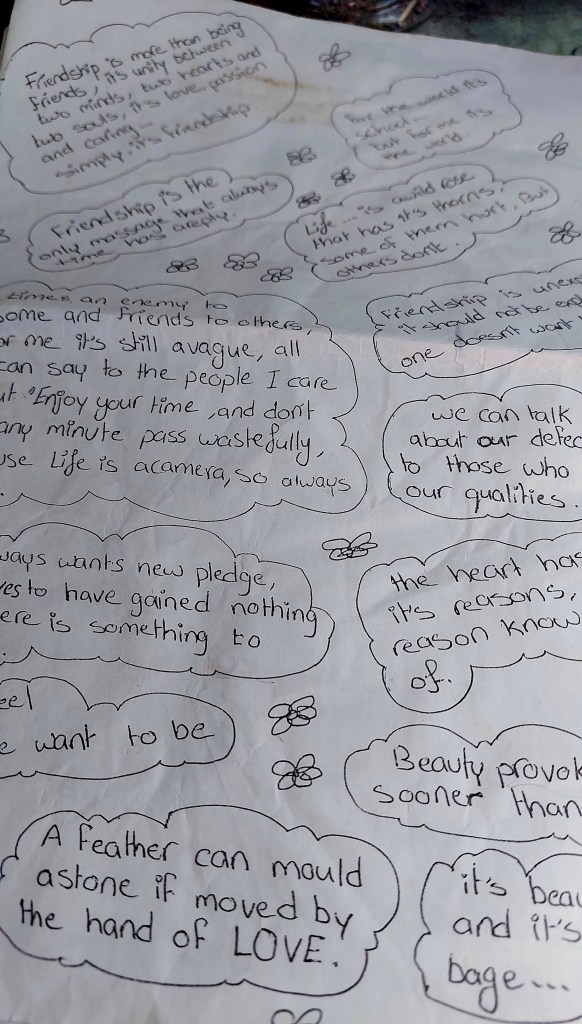 Friendship is more than being
friends, it's unity between
two minds, two hearts and
two souls, it's love, passion
and caring...
simply: it's friendship
For the world it's
school...
but for me its
the world.
Friendship is the
only massage that always
time has areply.
Life... is awild rose
that has it's thorns,
some of them hurt, But
others dont.
times an enemy to
ome and friends to others,
or me it's still avague, all
can say to the people I care
ut "Enjoy your time, and don't
any minute pass wastefully,
use Life is acamera, so always
Friendship is
it should not be
one doesn't want
we can talk
about our defec
to those who
our qualities.
ways wants new pledge,
es to have gained nothing
ere is something to
the heart has
it's reasons,
reason know
of.
eel
e want to be
Beauty provok
sooner than
A feather can mould
astone if moved by
the hand of LOVE.
it's beau
and it's
bage...